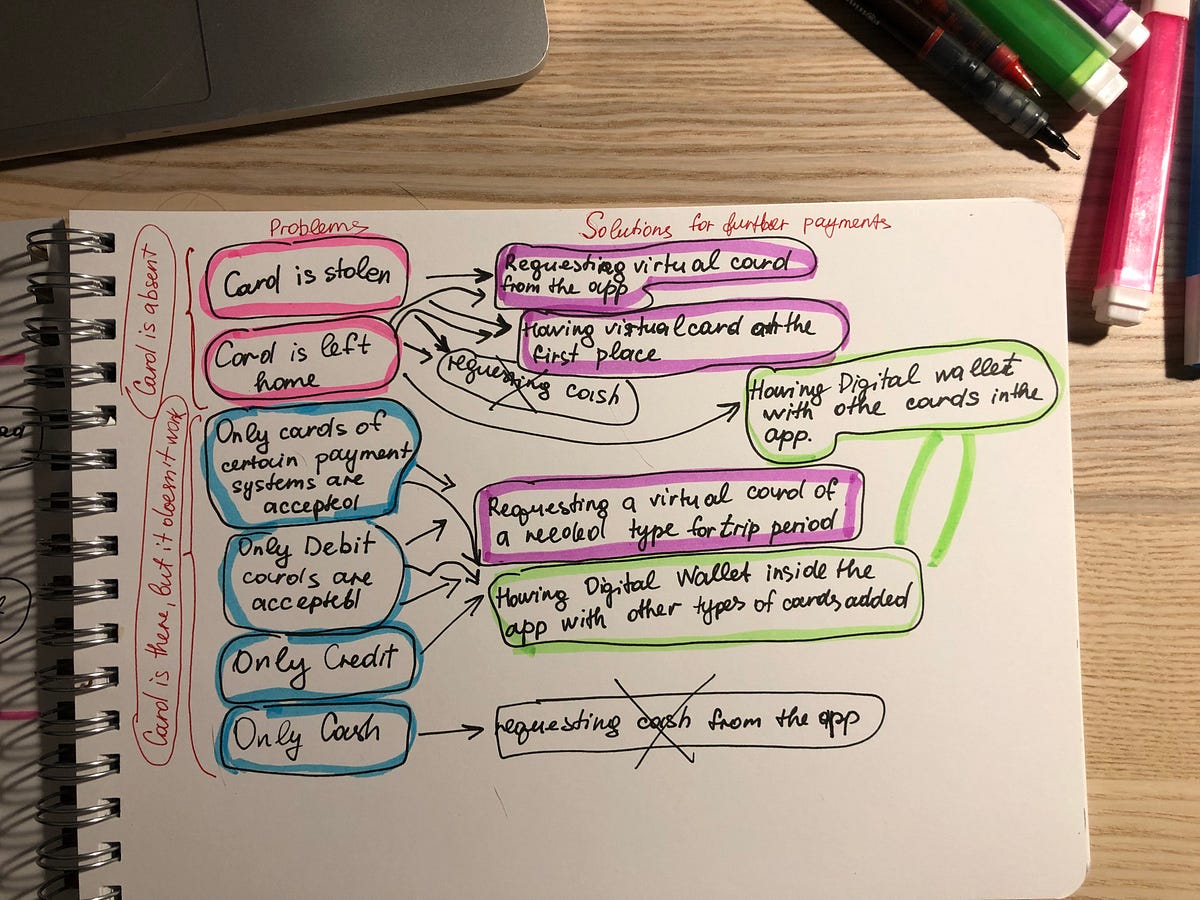 Problems
Solutions for further payments
Card is absent
Card is stolen
Requesting virtual card
from the app
Card is left
home
Having virtual card at the
first place
requesting cash
Having Digital wallet
with othe cards in the
app.
Card is there, but it doesn't work
Only cards of
certain payment
systems are
accepted
Requesting a virtual card of
a needed type for trip period
Only Debit
cards are
accepted
Having Digital Wallet inside the
app with other types of cards added
Only Credit
Only Cash
requesting cash from the app